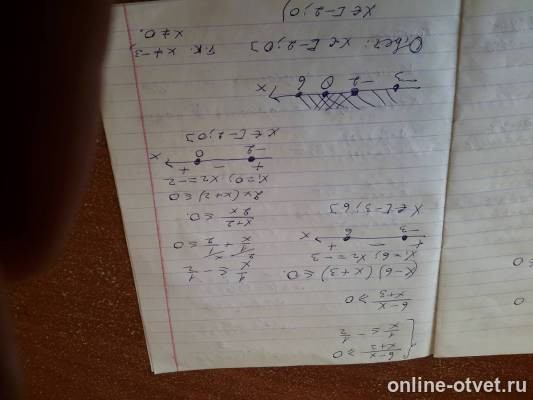 { 6-x / x+3 ≥ 0
1/x ≤ - 1/2
6-x / x+3 ≥ 0
(x-6)(x+3) ≤ 0.
x₁=6; x₂=-3
+ - +
-3 6 x
x ∈ [-3; 6]
1/x ≤ - 1/2
1/x + 1/2 ≤ 0
x+2 / 2x ≤ 0.
2x(x+2) ≤ 0
x₁=0; x₂=-2
+ - +
-2 0 x
x ∈ [-2; 0]
-3 -2 0 6 x
Ответ: x ∈ [-2; 0] т.к. x ≠ -3,
x ≠ 0.
x ∈ [-2; 0)
online-otvet.ru